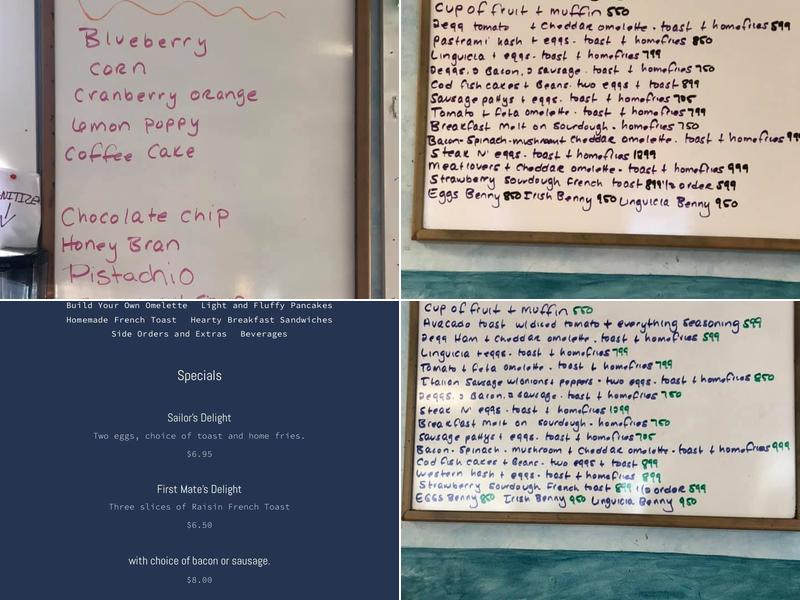 Blueberry
CORN
Cranberry orange
Lemon poppy
Coffee Cake
NITIZE
Chocolate chip
Honey Bran
Pistachio
Cup of fruit + muffin 550
2egg tomato + cheddar omelette - toast + homefries 599
pastrami hash + eggs - toast + homefries 850
Linguicia + eggs - toast + homefries 799
2eggs, 2 Bacon, 2 sausage - toast + homefries 750
Cod fish cakes + Beans - two eggs + toast 899
Sausage pattys + eggs - toast + homefries 705
Tomato + feta omelette - toast + homefries 799
Breakfast Melt on Sourdough - homefries 750
Bacon-Spinach-mushroom + cheddar omelette - toast + homefries 999
Steak N' eggs - toast + homefries 1299
Meatlovers + cheddar omelette - toast + homefries 999
Strawberry Sourdough French toast 899 1/2 order 599
Eggs Benny 850 Irish Benny 950 Linguicia Benny 950
Build Your Own Omelette Light and Fluffy Pancakes
Homemade French Toast Hearty Breakfast Sandwiches
Side Orders and Extras Beverages
Specials
Sailor's Delight
Two eggs, choice of toast and home fries.
$6.95
First Mate's Delight
Three slices of Raisin French Toast
$6.50
with choice of bacon or sausage.
$8.00
Cup of fruit + muffin 550
Avacado toast w/diced tomato + everything seasoning 599
2egg Ham + Cheddar omelette - toast + homefries 599
Linguicia + eggs - toast + homefries 799
Tomato + feta omelette - toast + homefries 799
Italian Sausage w/onions + peppers - two eggs - toast + homefries 850
2eggs, 2 Bacon, 2 sausage - toast + homefries 750
Steak N' eggs - toast + homefries 1299
Breakfast Melt on sourdough - homefries 750
Sausage pattys + eggs - toast + homefries 705
Bacon - Spinach - mushroom + Cheddar omelette - toast + homefries 999
Cod fish cakes + Beans - two eggs + toast 899
Western hash + eggs - toast + homefries 899
Strawberry Sourdough French toast 899 1/2 order 599
EGGS Benny 850 Irish Benny 950 Linguicia Benny 950